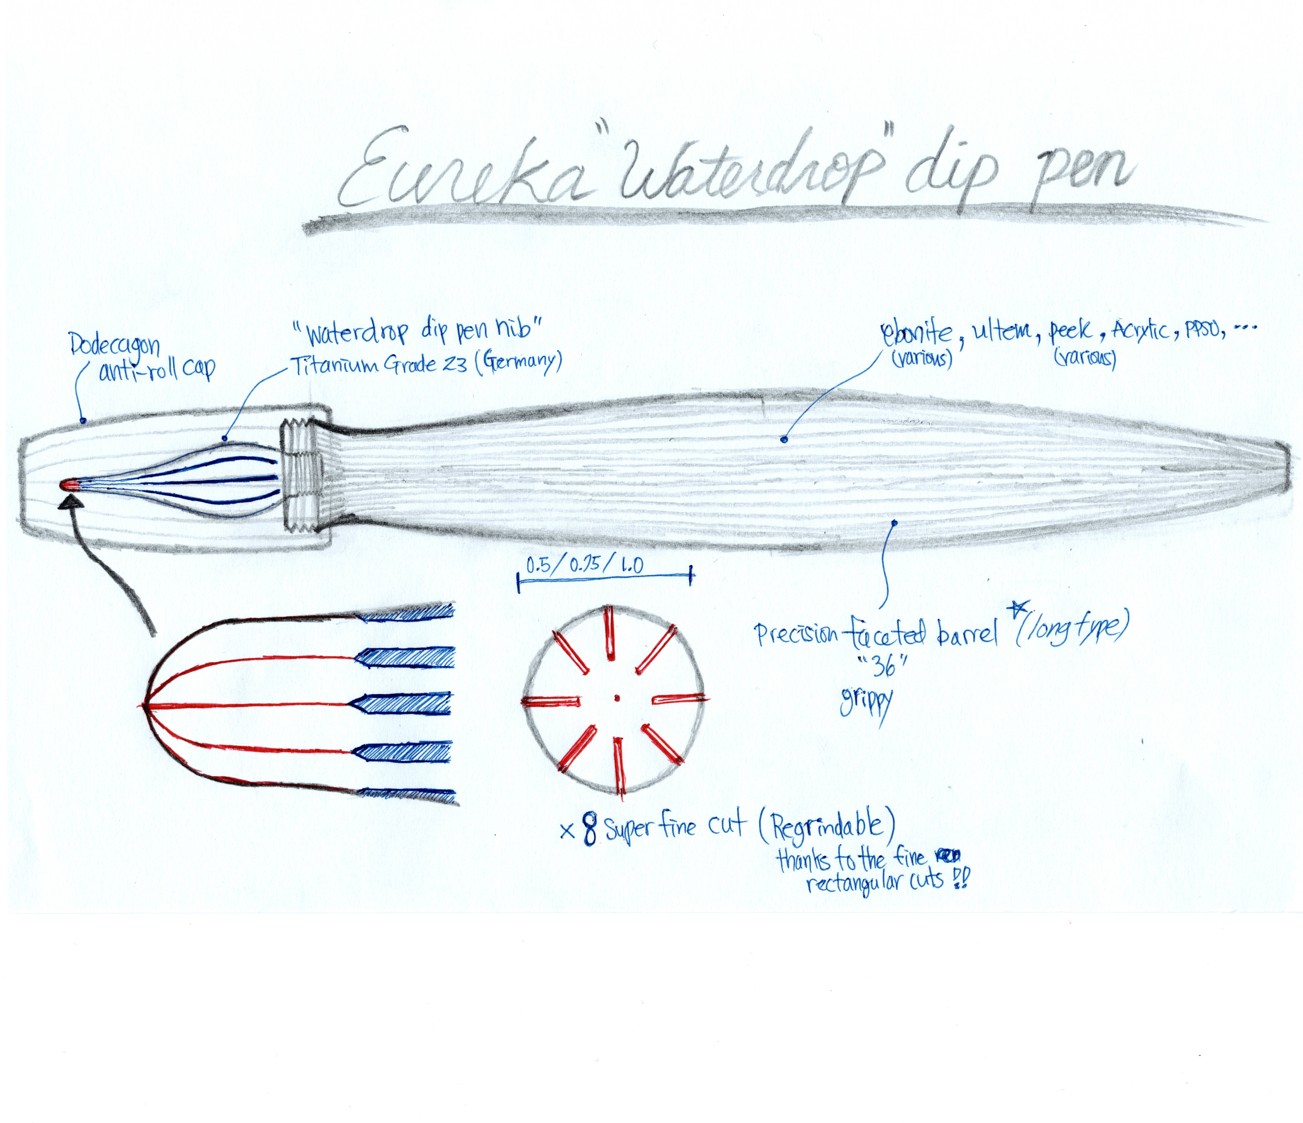 Eureka "Waterdrop" dip pen
Dodecagon
anti-roll cap
"Waterdrop dip pen nib"
Titanium Grade 23 (Germany)
ebonite, ultem, peek, Acrylic, PPSU, ...
(various)
(various)
0.5/0.75/1.0
Precision faceted barrel *(long type)
"36"
grippy
x 8 Super fine cut (Regrindable)
thanks to the fine
rectangular cuts !!